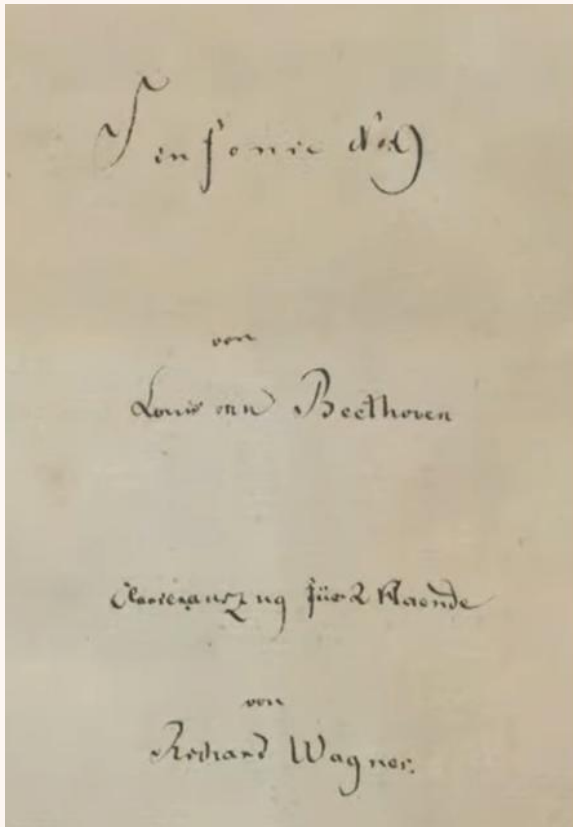 Sinfonie No 9
von
Louis van Beethoven
Clavierauszug für 2 Haende
von
Richard Wagner.